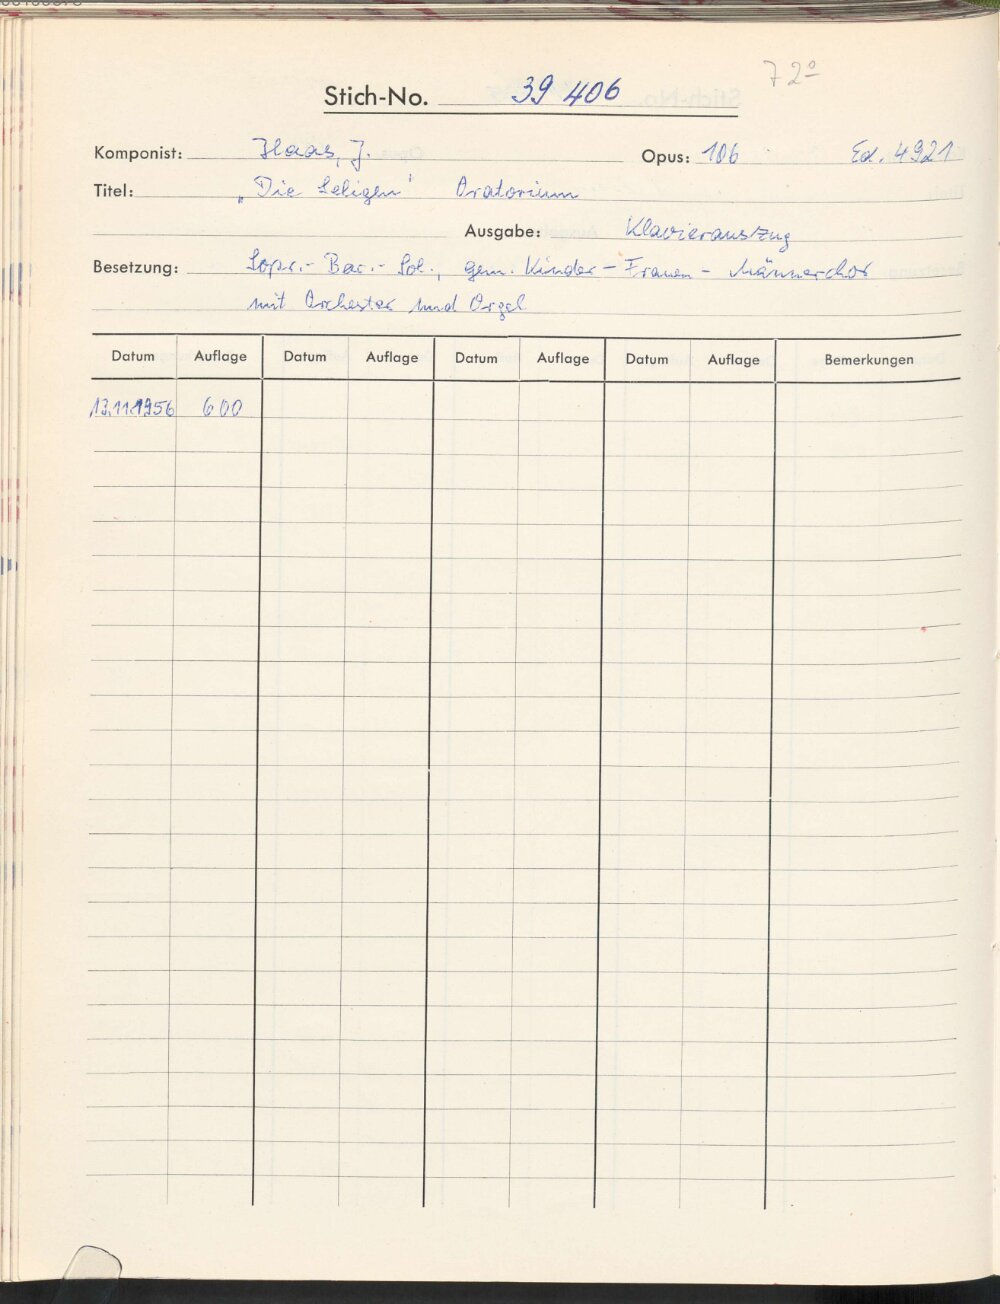 72º
Stich-No. 39 406
Komponist: Haas, J. Opus: 106 Ed. 4921
Titel: „Die Seligen" Oratorium
Ausgabe: Klavierauszug
Besetzung: Sopr.- Bar.- Sol., gem. Kinder - Frauen - Männerchor
mit Orchester und Orgel
Datum Auflage Datum Auflage Datum Auflage Datum Auflage Bemerkungen
13.11.1956 600